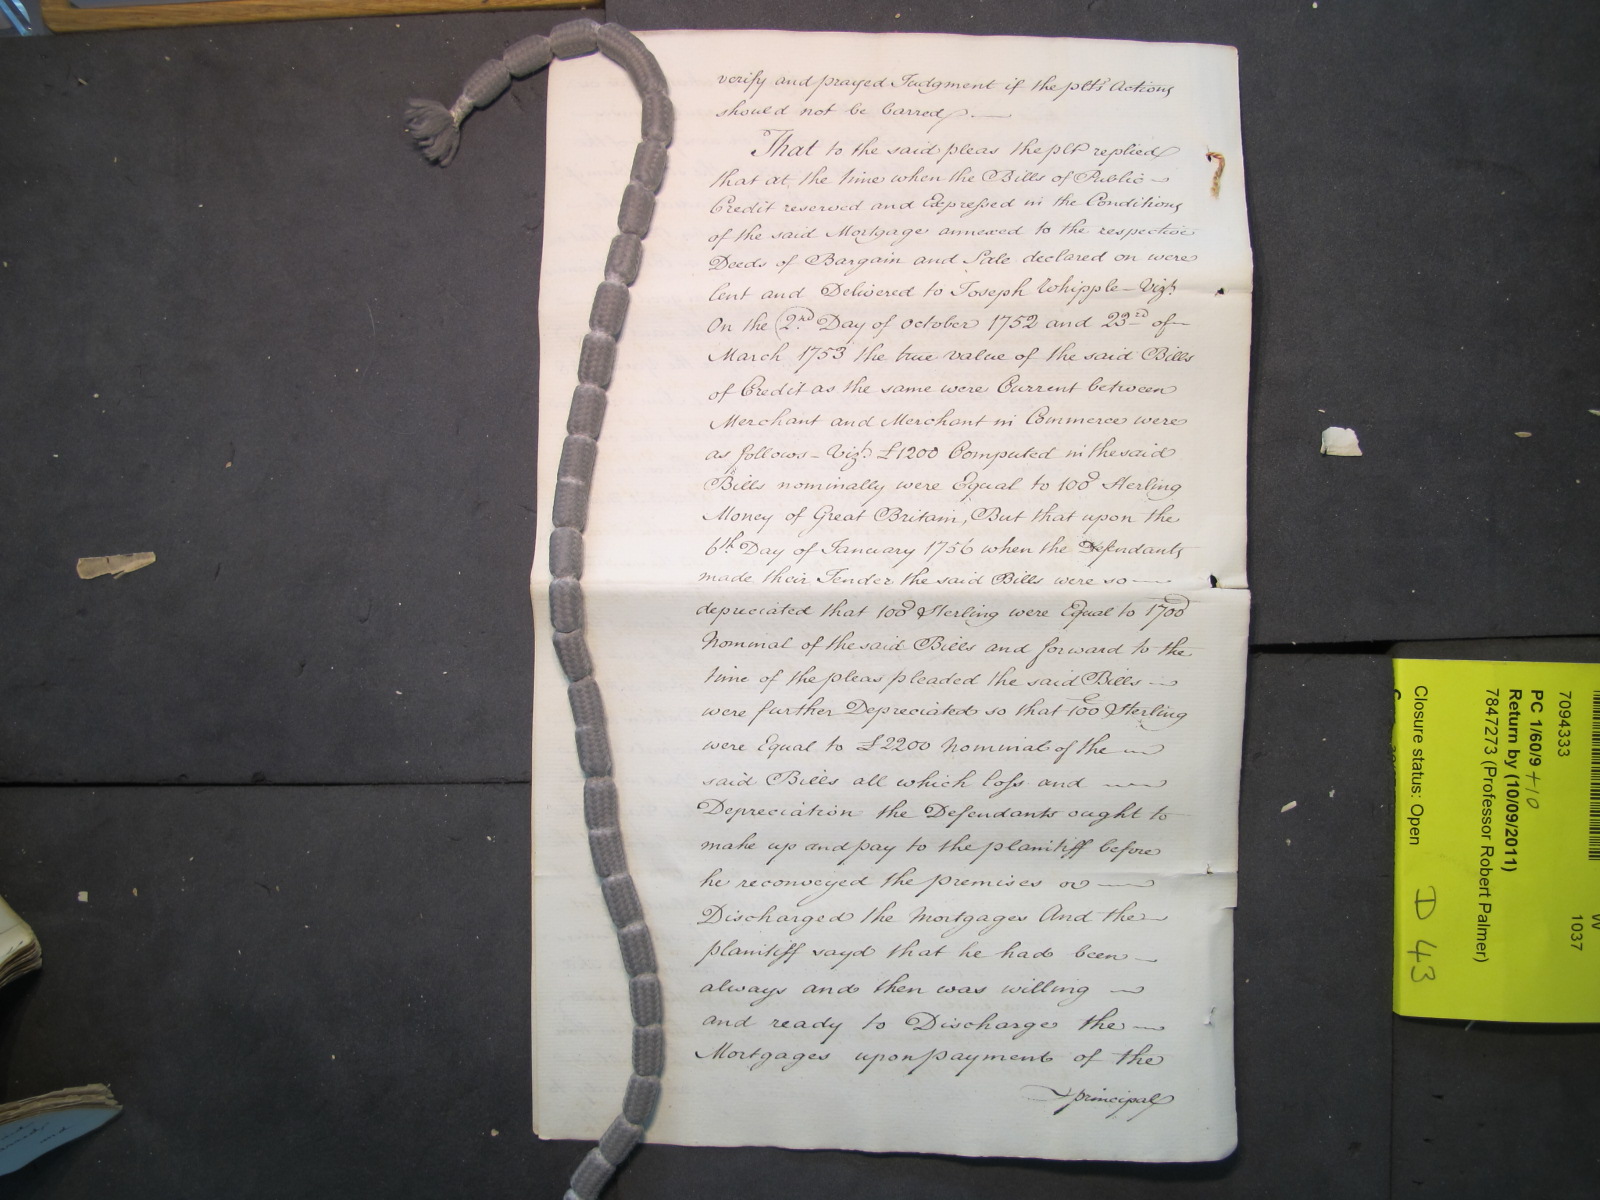 verify and prayed Judgment if the plt's Actions
should not be barred.
That to the said pleas the plt replied
that at the time when the Bills of Public
Credit reserved and Expressed in the Conditions
of the said Mortgage annexed to the respective
Deeds of Bargain and Sale declared on were
lent and Delivered to Joseph Whipple - Vizt
On the 2nd Day of October 1752 and 23rd of
March 1753 the true value of the said Bills
of Credit as the same were Current between
Merchant and Merchant in Commerce were
as follows - Vizt £1200 Computed in the said
Bills nominally were Equal to 100 Sterling
Money of Great Britain, But that upon the
6th Day of January 1756 when the Defendants
made their Tender the said Bills were so
depreciated that 100 Sterling were Equal to 1700
Nominal of the said Bills and forward to the
time of the pleas pleaded the said Bills
were further Depreciated so that £100 Sterling
were Equal to £2200 Nominal of the
said Bills all which loss and
Depreciation the Defendants ought to
make up and pay to the plaintiff before
he reconveyed the premises or
Discharged the Mortgages And the
plaintiff sayd that he had been
always and then was willing
and ready to Discharge the
Mortgages upon payment of the
principal
7094333
PC 1/60/9 +10
Return by (10/09/2011)
7847273 (Professor Robert Palmer)
Closure status: Open
D 43
1037